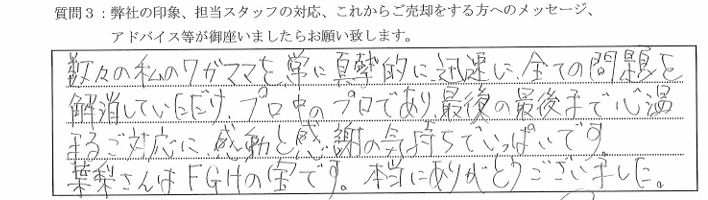 質問３：弊社の印象、担当スタッフの対応、これからご売却をする方へのメッセージ、
アドバイス等が御座いましたらお願い致します。
数々の私のワガママを、常に真摯的に、迅速に、全ての問題を
解消していただけ、プロ中のプロであり、最後の最後まで心温
まるご対応に、感動と感謝の気持ちでいっぱいです。
葉梨さんはFGHの宝です。本当にありがとうございました。